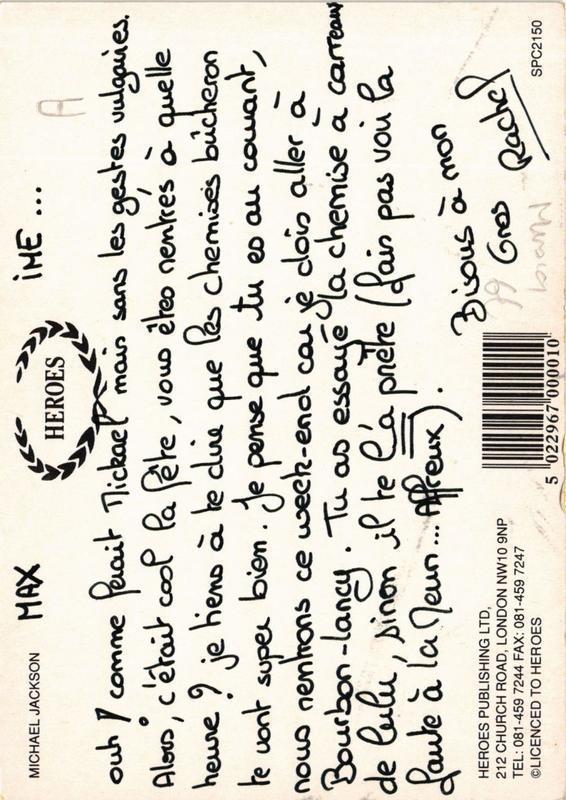 MICHAEL JACKSON
MAX
HEROES
IME...
ouh ! comme ferait Mickael mais sans les gestes vulgaires.
Alors, c'était cool la fête, vous êtes rentrés à quelle
heure ? je tiens à te dire que les chemises bûcheron
te vont super bien. Je pense que tu es au courant,
nous rentrons ce week-end car je dois aller à
Bourbon-lancy. Tu as essayé la chemise à carreaux
de lulu, sinon il te l'a prêtre (fais pas voir la
faute à la Meun... Affreux).
Bisous à mon
Gros
Rachel
A
HEROES PUBLISHING LTD,
212 CHURCH ROAD, LONDON NW10 9NP
TEL: 081-459 7244 FAX: 081-459 7247
©LICENCED TO HEROES
5 022967 000010
SPC2150